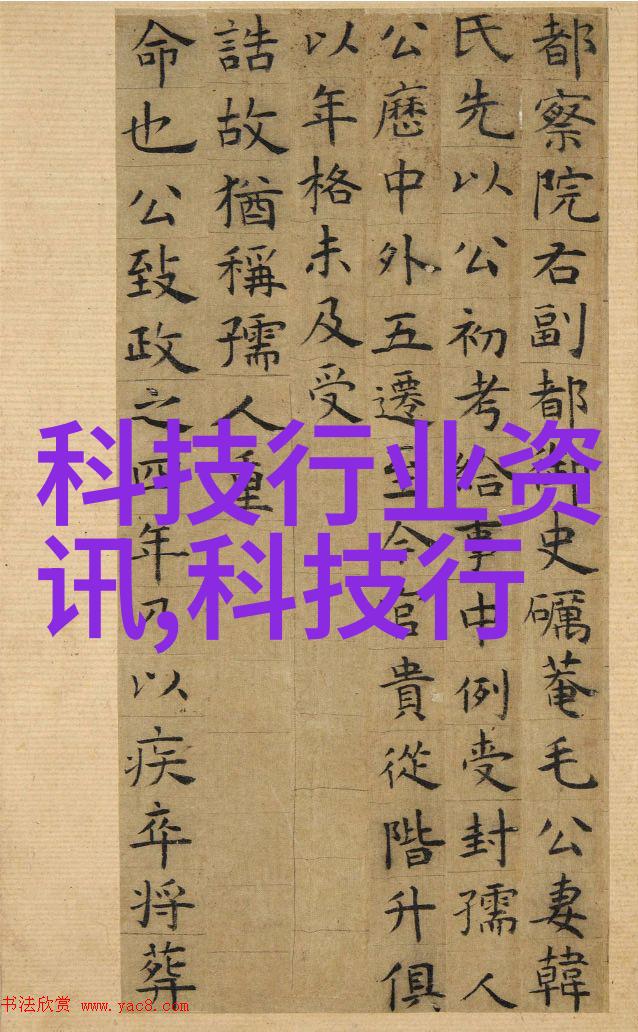 都察院右副都御史礪菴毛公妻韓
氏先以公初考給事中例受封孺人
公歷中外五遷至今官貴從階升俱
以年格未及受
誥故猶稱孺人重
命也公致政之四年乃以疾卒将葬
科技行业资
讯,科技行
书法欣赏 www.yac8.com